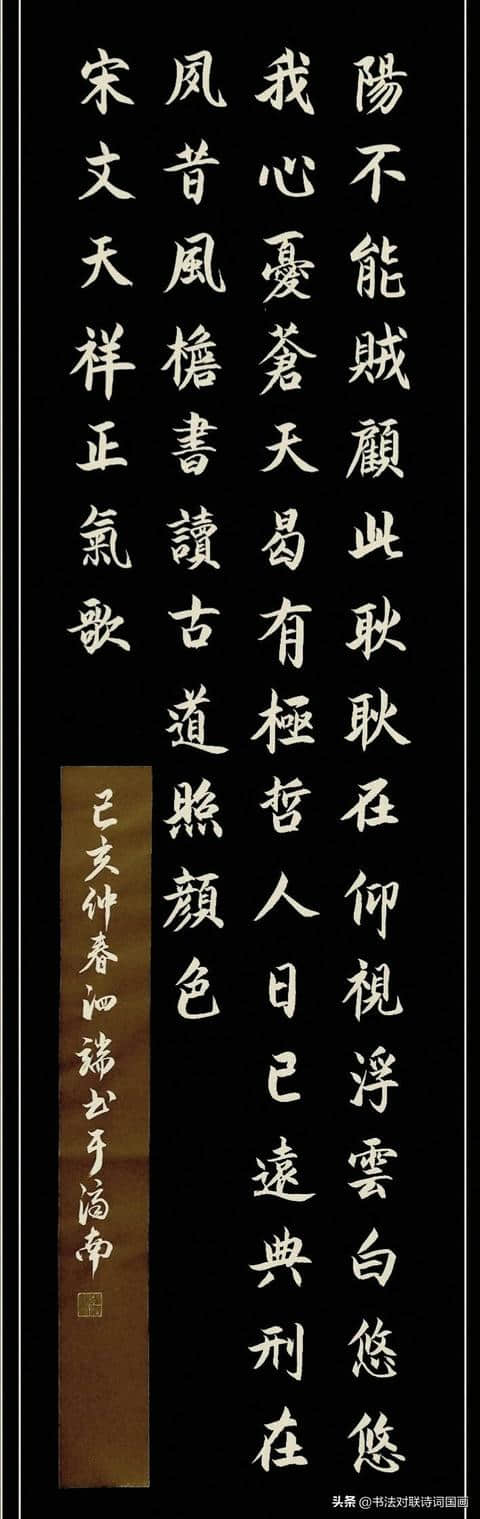 陽不能賊顧此耿耿在仰視浮雲白悠悠
我心憂蒼天曷有極哲人日已遠典刑在
夙昔風檐書讀古道照顔色
宋文天祥正氣歌
己亥仲春泗端书于济南
头条 @书法对联诗词国画